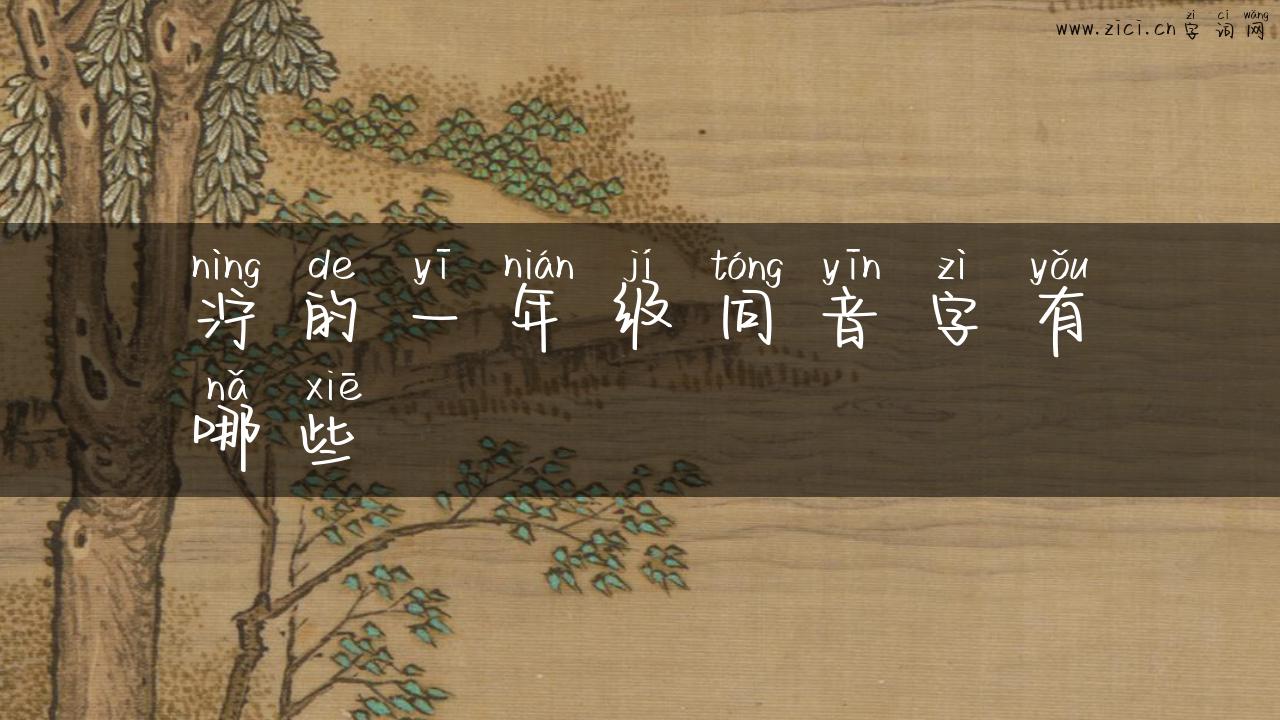 zì cí wǎng
www.zici.cn 字词网
nìng de yī nián jí tóng yīn zì yǒu
泞的一年级同音字有
nǎ xiē
哪些